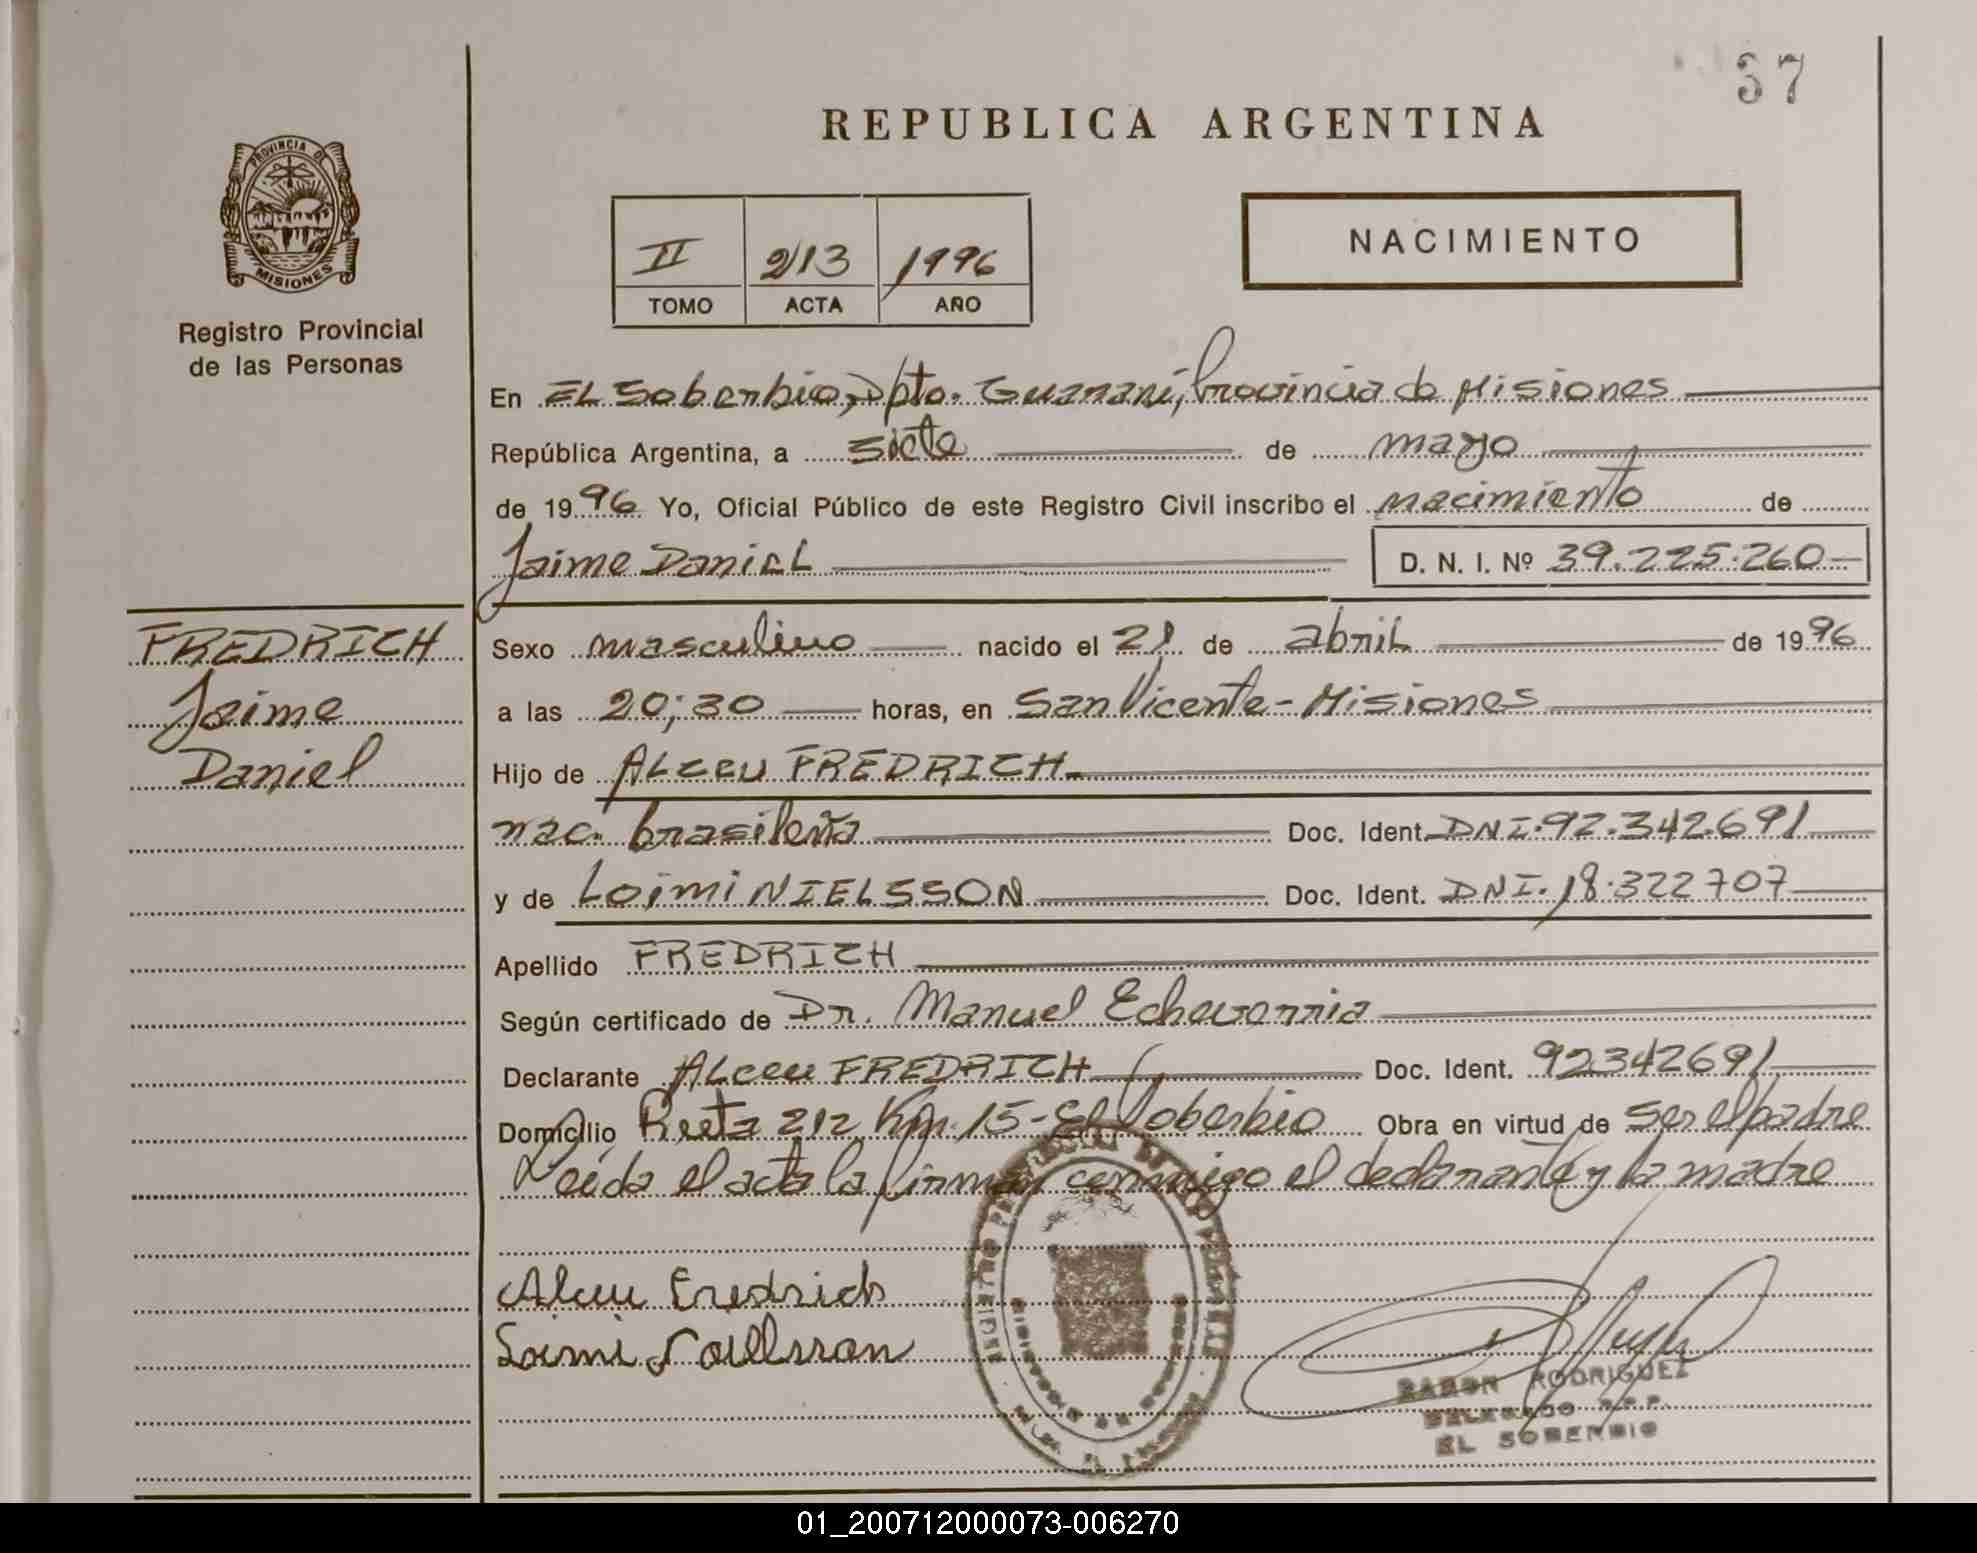 37
REPUBLICA ARGENTINA
PROVINCIA DE
MISIONES
Registro Provincial
de las Personas
II 213 1996
TOMO ACTA AÑO
NACIMIENTO
En EL Soberbio, Dpto. Guaraní, Provincia de Misiones
República Argentina, a siete de mayo
de 1996 Yo, Oficial Público de este Registro Civil inscribo el nacimiento de
Jaime DaniEL D. N. I. Nº 39.225.260
FREDRICH
Jaime
Daniel
Sexo masculino nacido el 21 de abriL de 1996
a las 20;30 horas, en San Vicente - Misiones
Hijo de ALCEU FREDRICH
nac. brasileña Doc. Ident. DNI. 92.342.691
y de Loimi NIELSSON Doc. Ident. DNI. 18.322707
Apellido FREDRICH
Según certificado de Dr. Manuel Echeverria
Declarante ALceu FREDRICH Doc. Ident. 92342691
Domicilio Ruta 212 Km. 15 - El Soberbio Obra en virtud de ser el padre
Leída el acta la firman conmigo el declarante y la madre
Alceu Fredrich
Loimi
RAMON RODRIGUEZ
DELEGADO R.P.P.
EL SOBERBIO
01_200712000073-006270